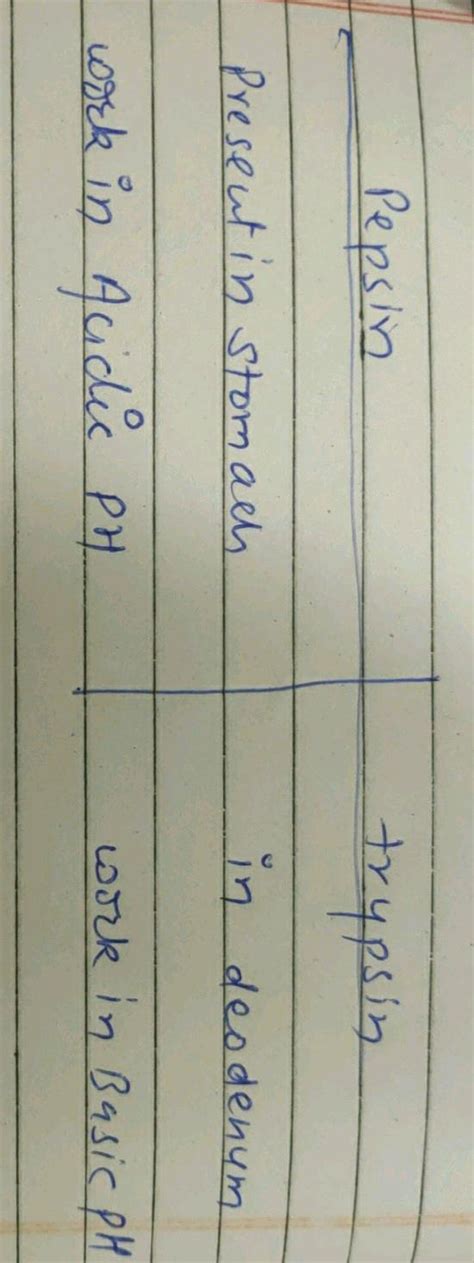 Pepsin trypsin
Present in stomach in deodenum
work in Acidic PH work in Basic pH